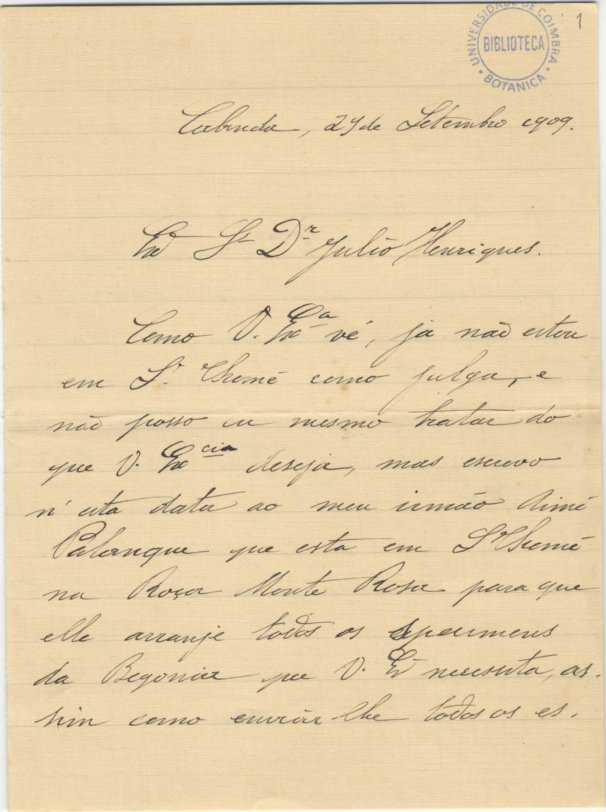 UNIVERSIDADE DE COIMBRA
BIBLIOTECA
BOTANICA
1
Cabinda, 27 de Setembro 1909.
Exº Sr Dr Julio Henriques.
Como V. Exª vê, ja não estou
em S. Thomé como julga, e
não posso eu mesmo tratar do
que V. Excia deseja, mas escrevo
n'esta data ao meu irmão Aimé
Palanque que esta em S. Thomé
na Roça Monte Rosa para que
elle arranje todos os specimens
da Begonia que V. Eª necessita, as-
sim como enviar-lhe todos os es-